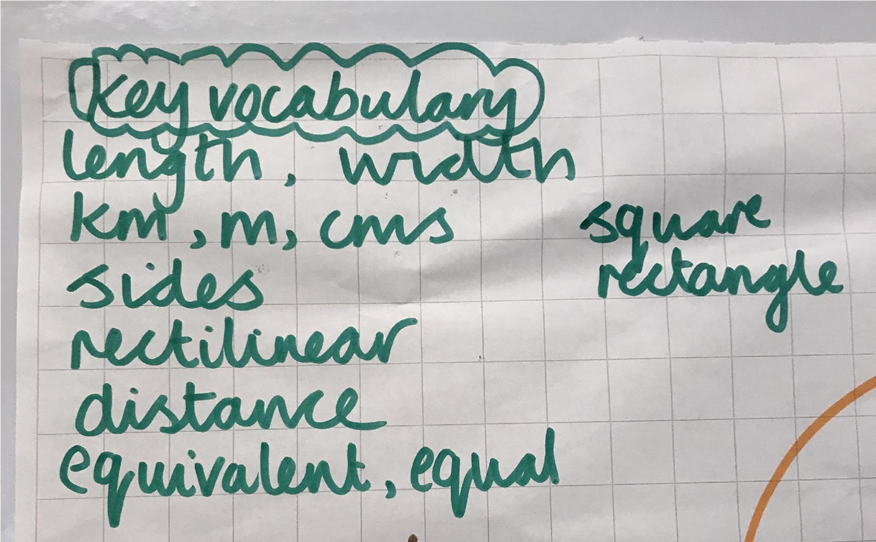 Key vocabulary
length, width
km, m, cms
sides
rectilinear
distance
equivalent, equal
square
rectangle